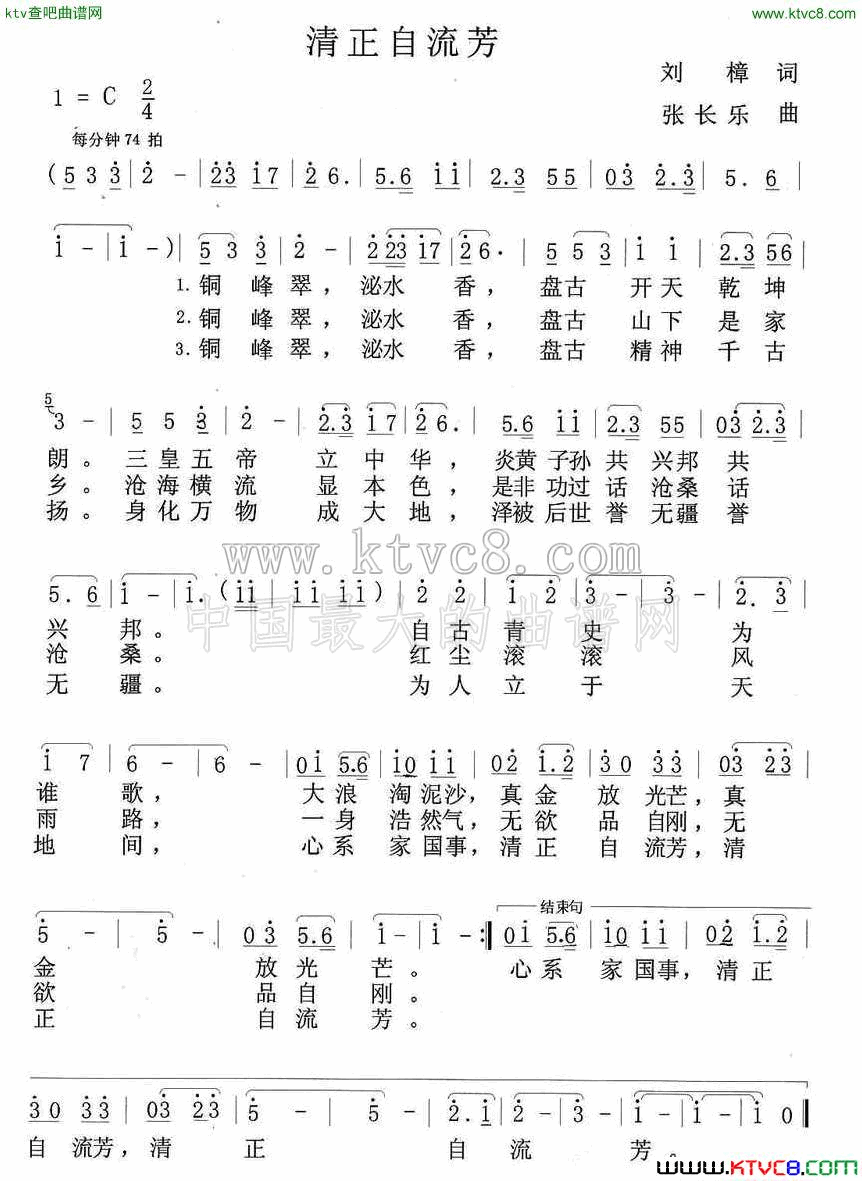 ktv查吧曲谱网
www.ktvc8.com
清正自流芳
刘樟词
1 = C 2/4
张长乐 曲
每分钟74拍
(5 3 3 | 2 - | 23 17 | 26. | 5.6 11 | 2.3 55 | 03 2.3 | 5. 6
1 - | 1 - ) | 5 3 3 | 2 - | 2 23 17 | 26. | 5 5 5 | 1 1 | 2.3 56
1. 铜 峰翠，泌水 香，盘古 开天 乾坤
2. 铜 峰翠，泌水 香，盘古 山下 是家
3. 铜 峰翠，泌水 香，盘古 精神 千古
5
3 - | 5 5 3 | 2 - | 2.3 17 | 26. | 5.6 11 | 2.3 55 | 03 2.3
朗。三皇五帝 立中华，炎黄子孙共兴邦共
乡。沧海横流 显本色，是非功过话沧桑话
扬。身化万物 成大地，泽被后世誉无疆誉
www.ktvc8.com
5. 6 | 1 - | 1. (11 | 11 11) | 2 2 | 1 2 | 3 - | 3 - | 2. 3
中国最大的曲谱网
兴邦。 自古青史 为
沧桑。 红尘滚滚 风
无疆。 为人立于 天
1 7 | 6 - | 6 - | 01 5.6 | 10 11 | 02 1.2 | 30 33 | 03 23
谁歌， 大浪 淘泥沙，真金 放光芒，真
雨路， 一身 浩然气，无欲 品自刚，无
地间， 心系 家国事，清正 自流芳，清
结束句
5 - | 5 - | 03 5.6 | 1 - | 1 - :‖ 01 5.6 | 10 11 | 02 1.2
金 放光芒。 心系 家国事，清正
欲 品自刚。
正 自流芳。
30 33 | 03 23 | 5 - | 5 - | 2. 1 | 2 - | 3 - | 1 - | 1 0 ‖
自 流芳，清 正 自 流 芳。
www.KTVC8.com